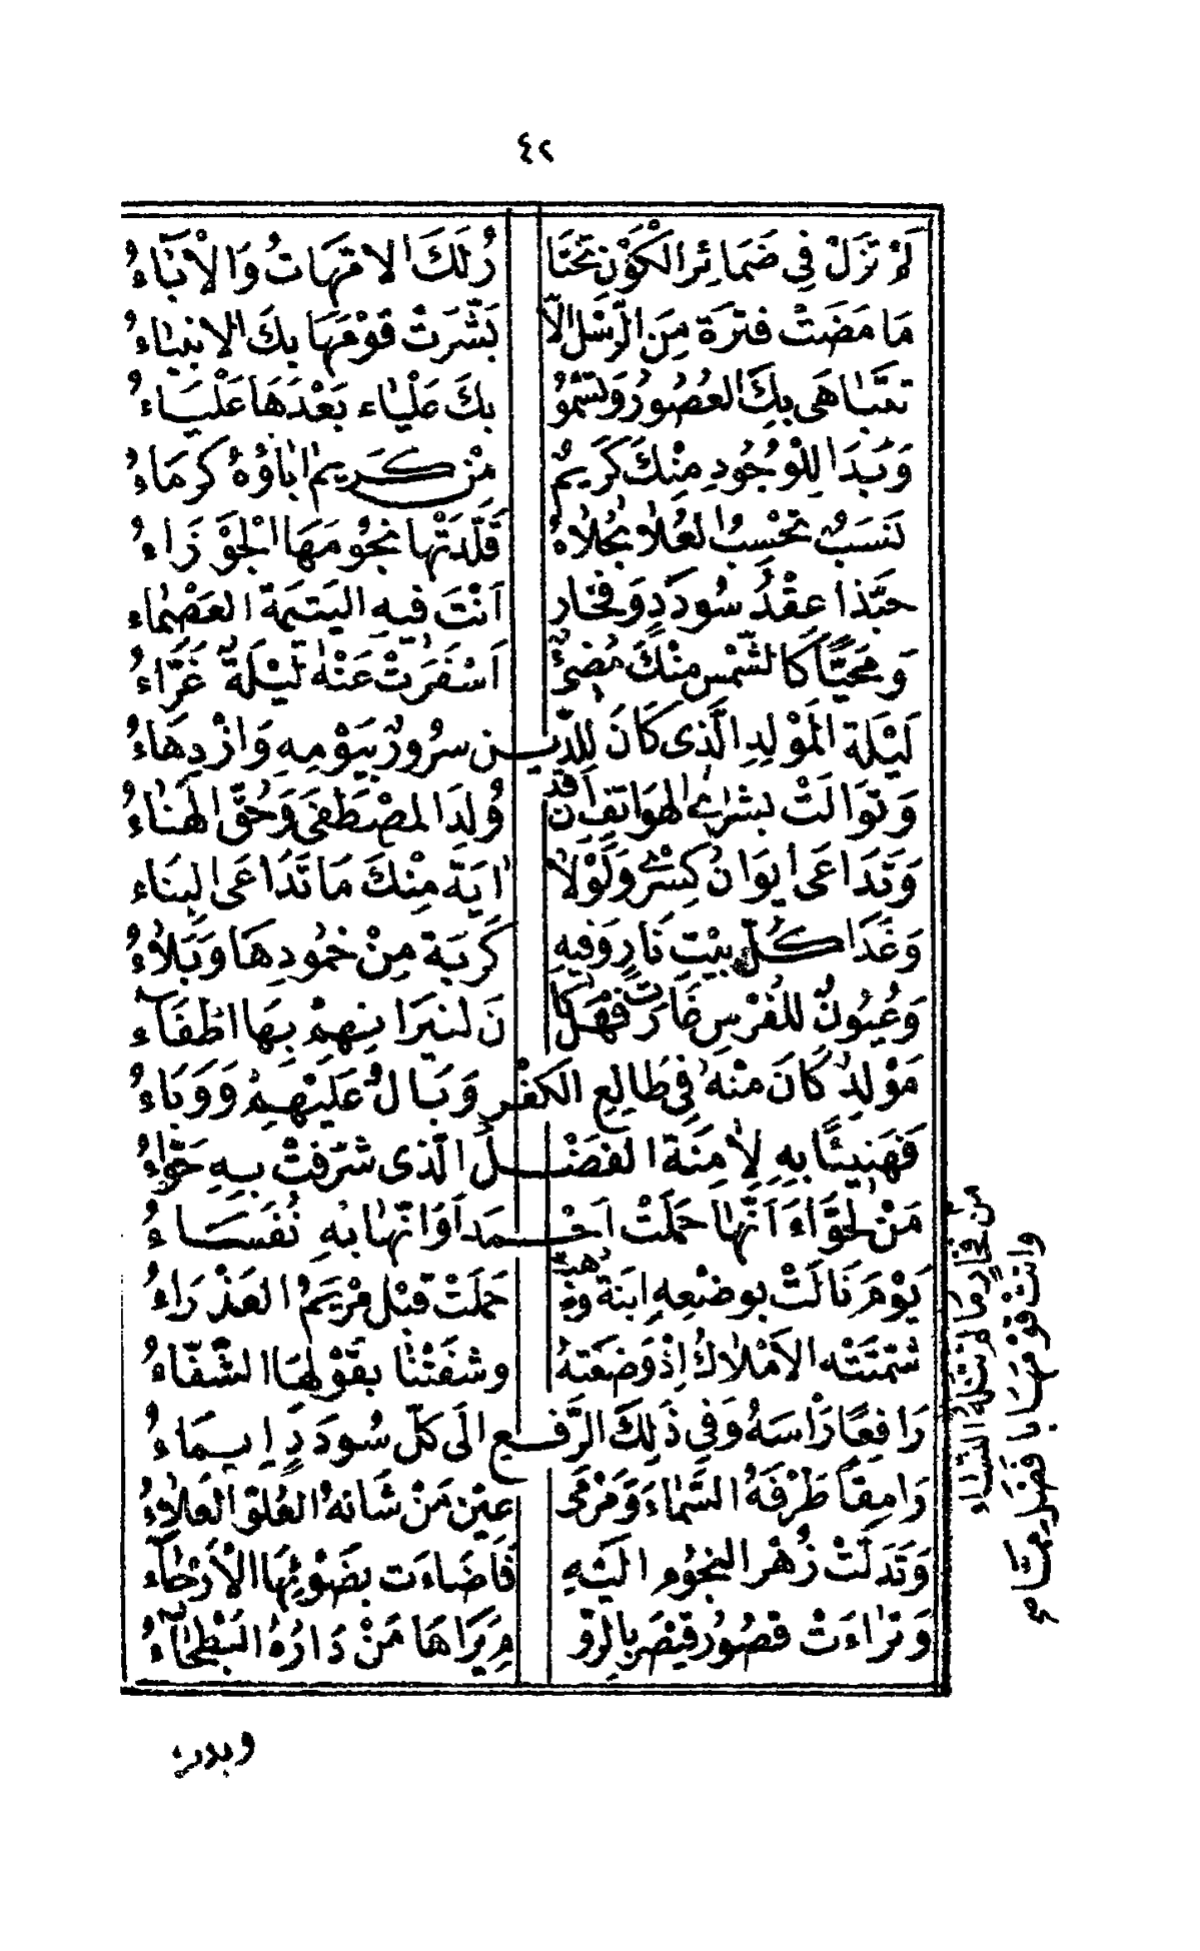 ٤٢
لَمْ تَزَلْ فِي ضَمَائِرِ الْكَوْنِ تُخْتَا رُ لَكَ الْأُمَّهَاتُ وَالْآبَاءُ
مَا مَضَتْ فَتْرَةٌ مِنَ الرُّسْلِ إِلَّا بَشَّرَتْ قَوْمَهَا بِكَ الْأَنْبِيَاءُ
تَتَبَاهَى بِكَ الْعُصُورُ وَتَسْمُو بِكَ عَلْيَاءُ بَعْدَهَا عَلْيَاءُ
وَبَدَا لِلْوُجُودِ مِنْكَ كَرِيمٌ مِنْ كَرِيمٍ آبَاؤُهُ كُرَمَاءُ
نَسَبٌ تَحْسِبُ الْعُلَا بِحُلَاهُ قَلَّدَتْهَا نُجُومَهَا الْجَوْزَاءُ
حَبَّذَا عِقْدُ سُودَدٍ وَفَخَارٍ أَنْتَ فِيهِ الْيَتِيمَةُ الْعَصْمَاءُ
وَمُحَيًّا كَالشَّمْسِ مِنْكَ مُضِيءٌ أَسْفَرَتْ عَنْهُ لَيْلَةٌ غَرَّاءُ
لَيْلَةُ الْمَوْلِدِ الَّذِي كَانَ لِلدِّينِ سُرُورٌ بِيَوْمِهِ وَازْدِهَاءُ
وَتَوَالَتْ بُشْرَى الْهَوَاتِفِ أَنْ قَدْ وُلِدَ الْمُصْطَفَى وَحُقَّ الْهَنَاءُ
وَتَدَاعَى إِيوَانُ كِسْرَى وَلَوْلَا آيَةٌ مِنْكَ مَا تَدَاعَى الْبِنَاءُ
وَغَدَا كُلُّ بَيْتِ نَارٍ وَفِيهِ كُرْبَةٌ مِنْ خُمُودِهَا وَبَلَاءُ
وَعُيُونٌ لِلْفُرْسِ غَارَتْ فَهَلْ كَا نَ لِنِيرَانِهِمْ بِهَا إِطْفَاءُ
مَوْلِدٌ كَانَ مِنْهُ فِي طَالِعِ الْكُفْرِ وَبَالٌ عَلَيْهِمُ وَوَبَاءُ
فَهَنِيئًا بِهِ لِآمِنَةَ الْفَضْلُ الَّذِي شُرِّفَتْ بِهِ حَوَّاءُ
مَنْ لِحَوَّاءَ أَنَّهَا حَمَلَتْ أَحْمَدَ أَوْ أَنَّهَا بِهِ نُفَسَاءُ
يَوْمَ نَالَتْ بِوَضْعِهِ ابْنَةُ وَهْبٍ
مِنْ فَخَارٍ مَا لَمْ تَنَلْهُ النِّسَاءُ
وَأَتَتْ قَوْمَهَا بِأَفْضَلَ مِمَّا
حَمَلَتْ قَبْلُ مَرْيَمُ الْعَذْرَاءُ
شَمَّتَتْهُ الْأَمْلَاكُ إِذْ وَضَعَتْهُ وَشَفَتْنَا بِقَوْلِهَا الشَّفَّاءُ
رَافِعًا رَأْسَهُ وَفِي ذَلِكَ الرَّفْعِ إِلَى كُلِّ سُودَدٍ إِيمَاءُ
رَامِقًا طَرْفُهُ السَّمَاءَ وَمَرْمَى عَيْنِ مَنْ شَأْنُهُ الْعُلُوُّ الْعَلَاءُ
وَتَدَلَّتْ زُهْرُ النُّجُومِ إِلَيْهِ فَأَضَاءَتْ بِضَوْئِهَا الْأَرْجَاءُ
وَتَرَاءَتْ قُصُورُ قَيْصَرَ بِالرُّو مِ يَرَاهَا مَنْ دَارُهُ الْبَطْحَاءُ
وبدت